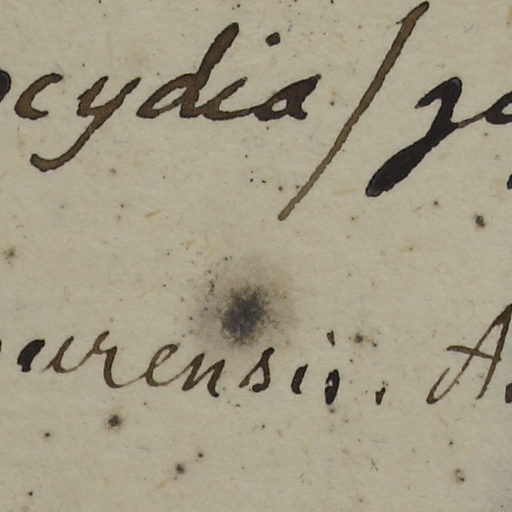 ocydia/
urensis. A